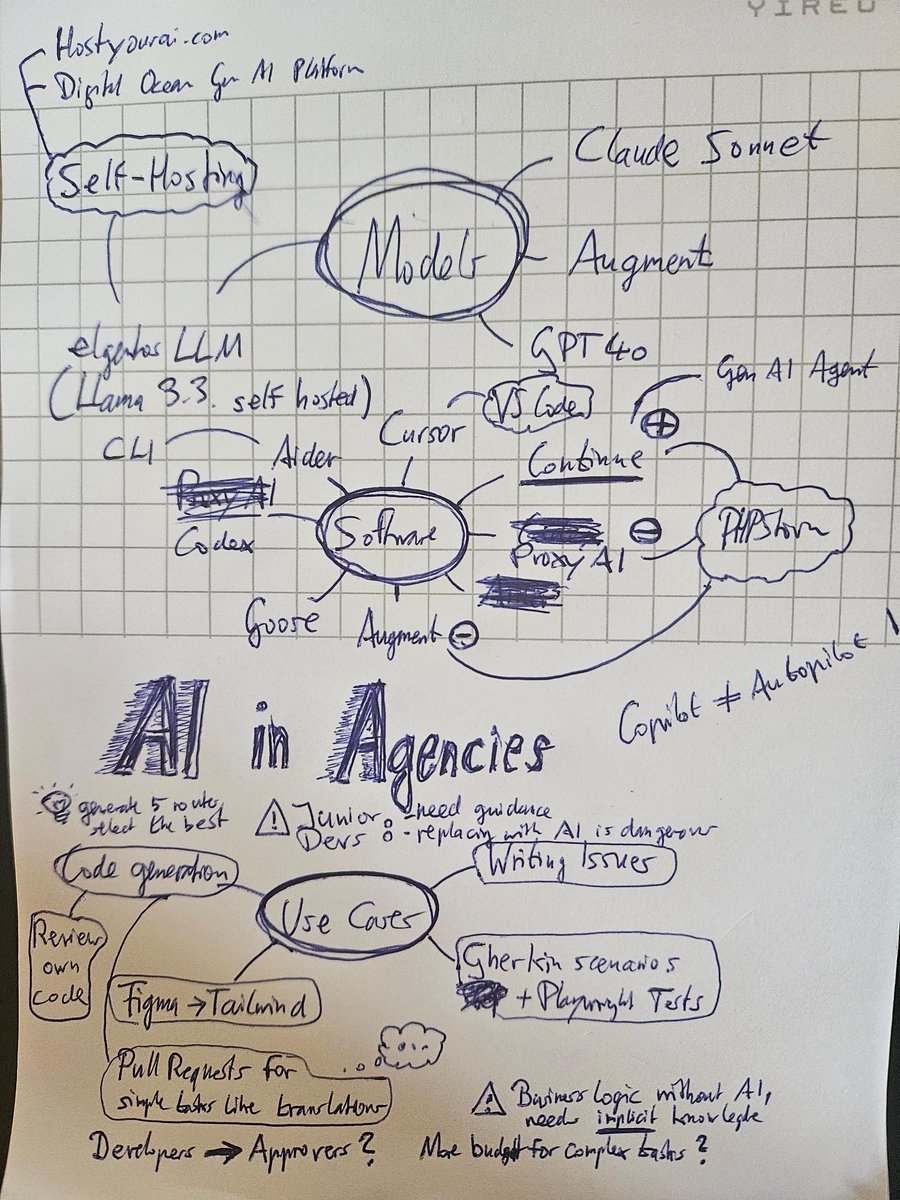 YIREO
Hostyourai.com
Digital Ocean Gen AI Platform
Self-Hosting
Models
Claude Sonnet
Augment
GPT 4o
elgentos LLM
(Llama 3.3. self hosted)
VS Code
Gen AI Agent
CLI
Aider
Cursor
Continue
+
Proxy AI
Codex
Software
Proxy AI
-
PHPStorm
Goose
Augment -
Copilot ≠ Autopilot !
AI in Agencies
generate 5 routes,
select the best
! Junior
Devs
: - need guidance
- replacing with AI is dangerous
Code generation
Use Cases
Writing Issues
Review
own
code
Figma → Tailwind
Gherkin scenarios
+ Playwright Tests
Pull Requests for
simple tasks like translations
! Business logic without AI,
needs implicit knowledge
Developers → Approvers?
More budget for complex tasks?